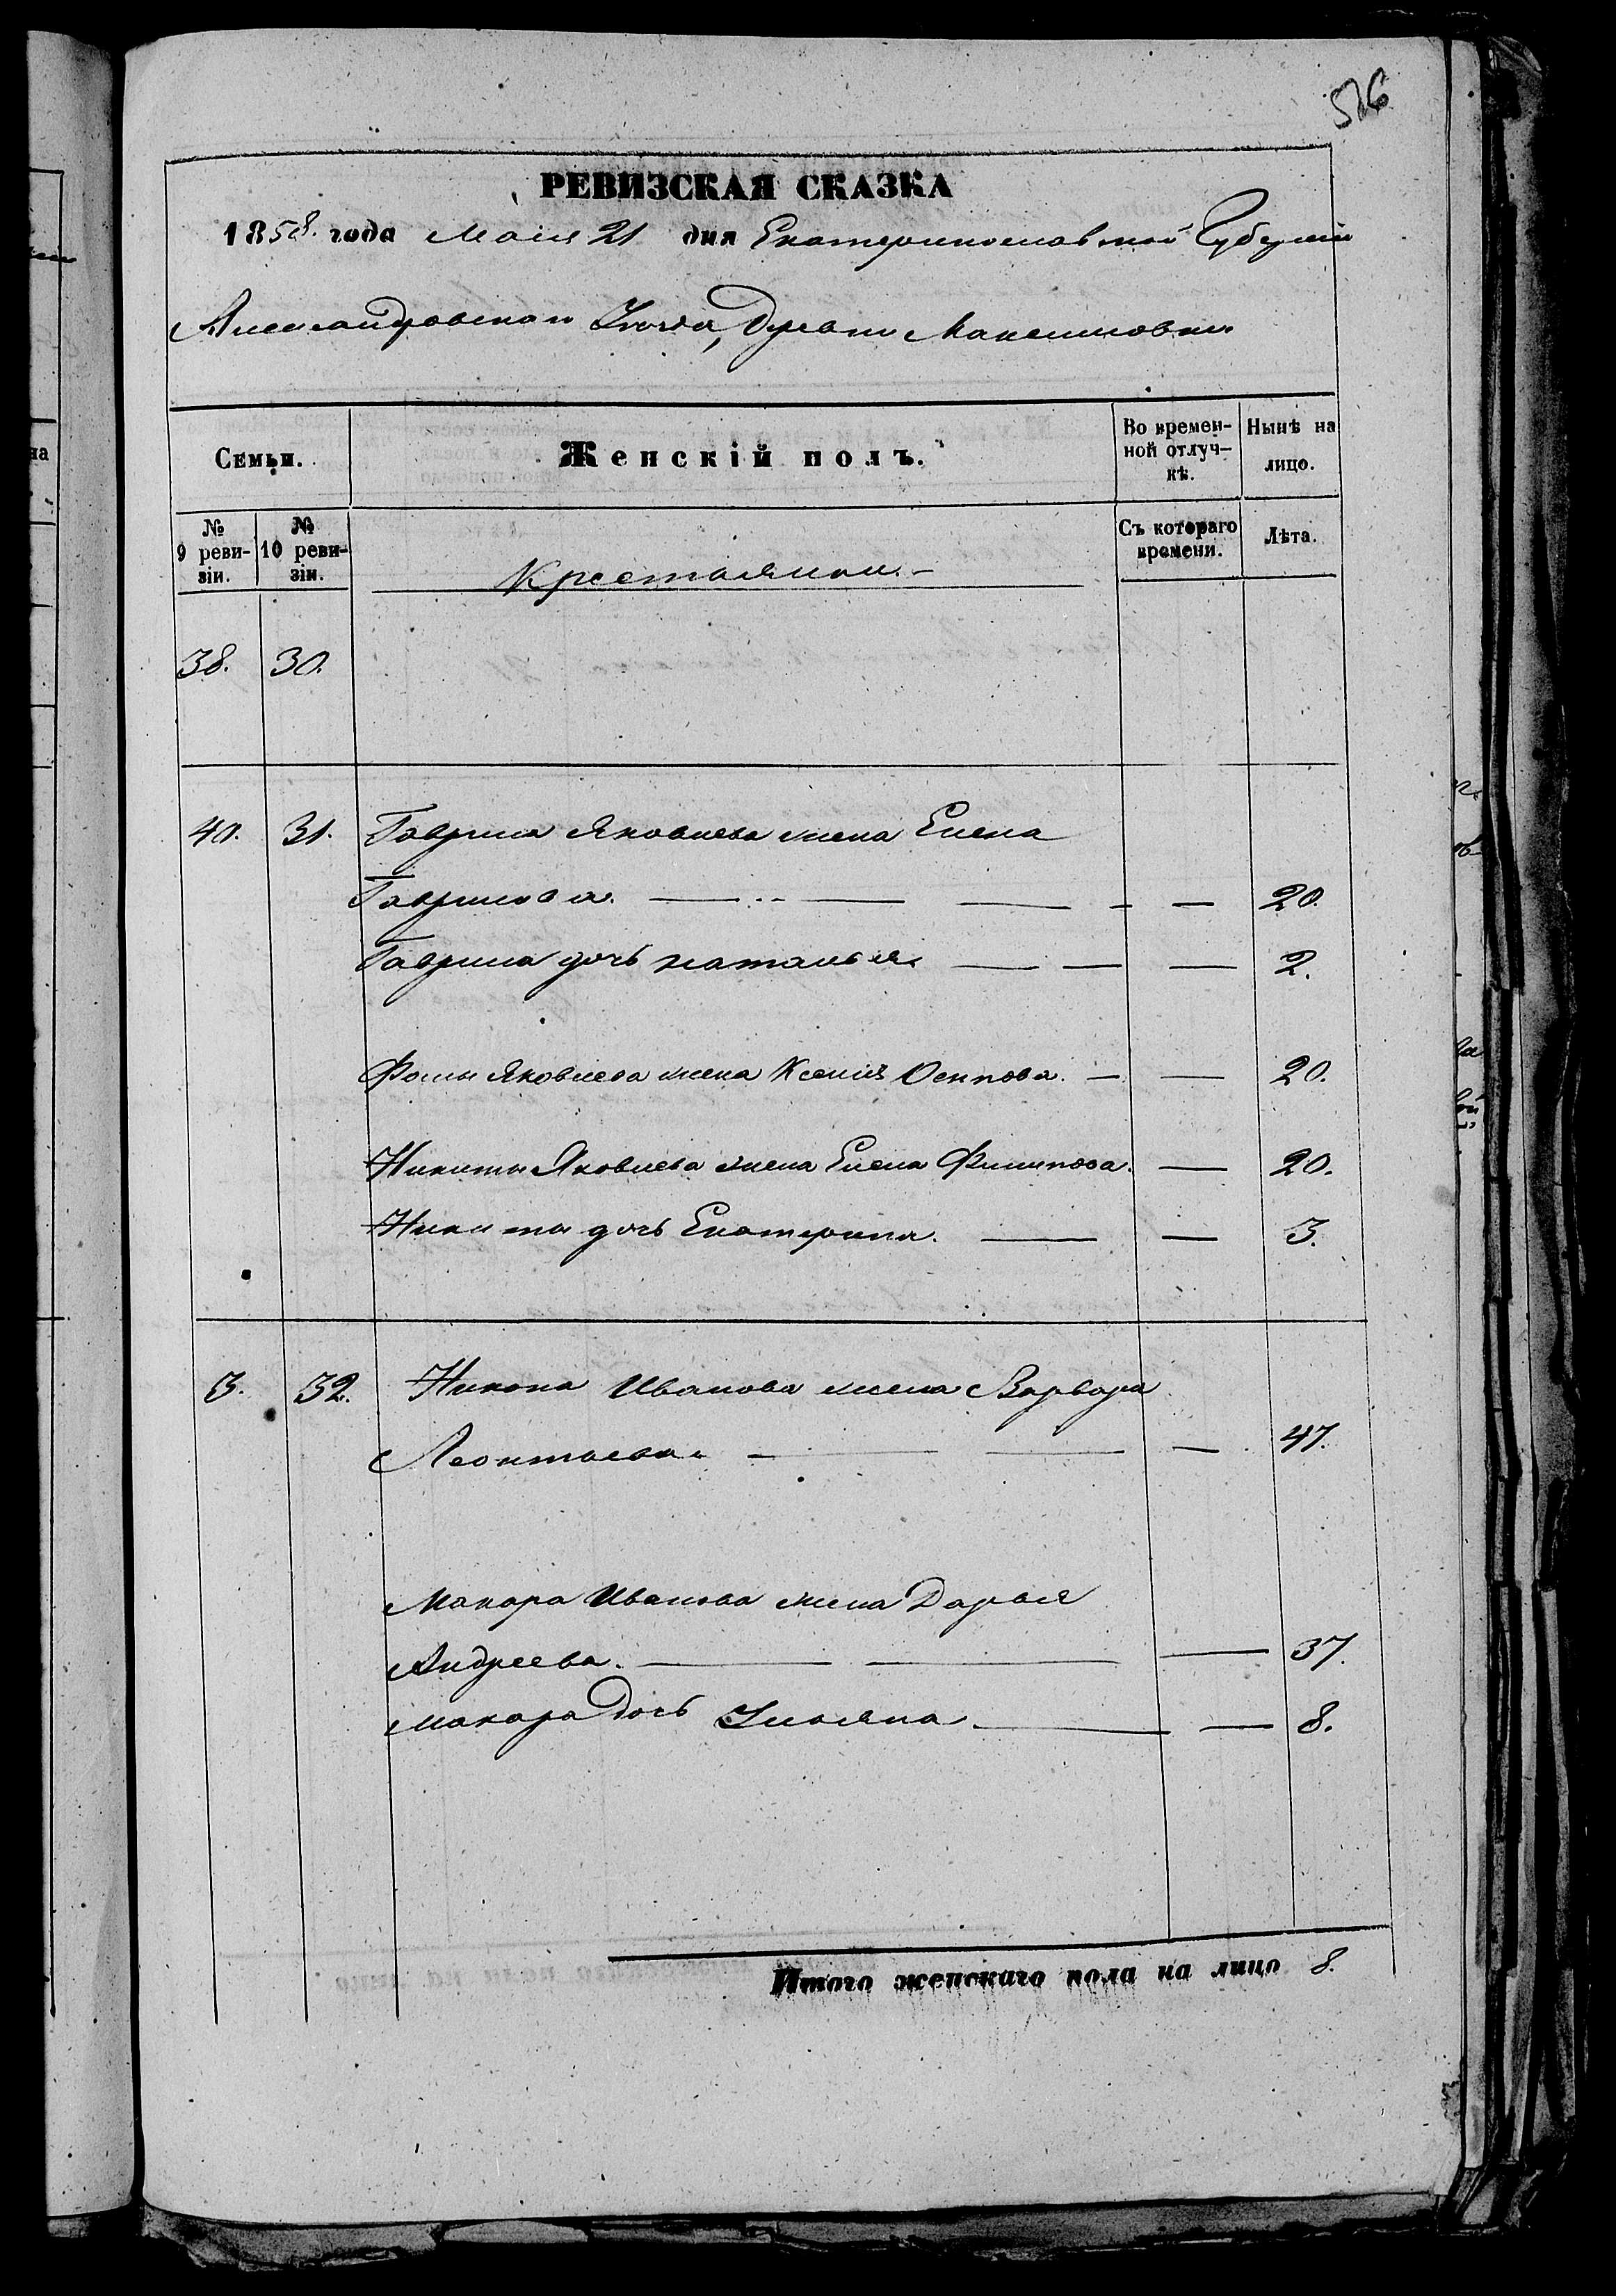 516
РЕВИЗСКАЯ СКАЗКА
1858. года Маія 21 дня Екатеринославской Губерніи
Александровскаго Уезда, Дервни Максимовки
Семьи.
Женскій полъ.
Во времен-
ной отлуч-
кѣ.
Нынѣ на
лицо.
№
9 реви-
зіи.
№
10 реви-
зіи.
Крестьянки. —
Съ котораго
времени.
Лѣта.
38. 30.
40. 31. Гаврила Яковлева жена Елена
Гаврилова. — — — — — 20.
Гаврила дочь наталья. — — — 2.
Фомы Яковлева жена Ксенія Осипова. — — 20.
Никиты Яковлева жена Елена Филипова. — 20.
Никиты дочь Екатерина. — — 3.
3. 32. Никона Иванова жена Варвара
Леонтьева. — — — 47.
Макара Иванова жена Дарья
Андреева. — — — 37.
Макара Дочь Ульяна. — — 8.
Итого женскаго пола на лицо 8.